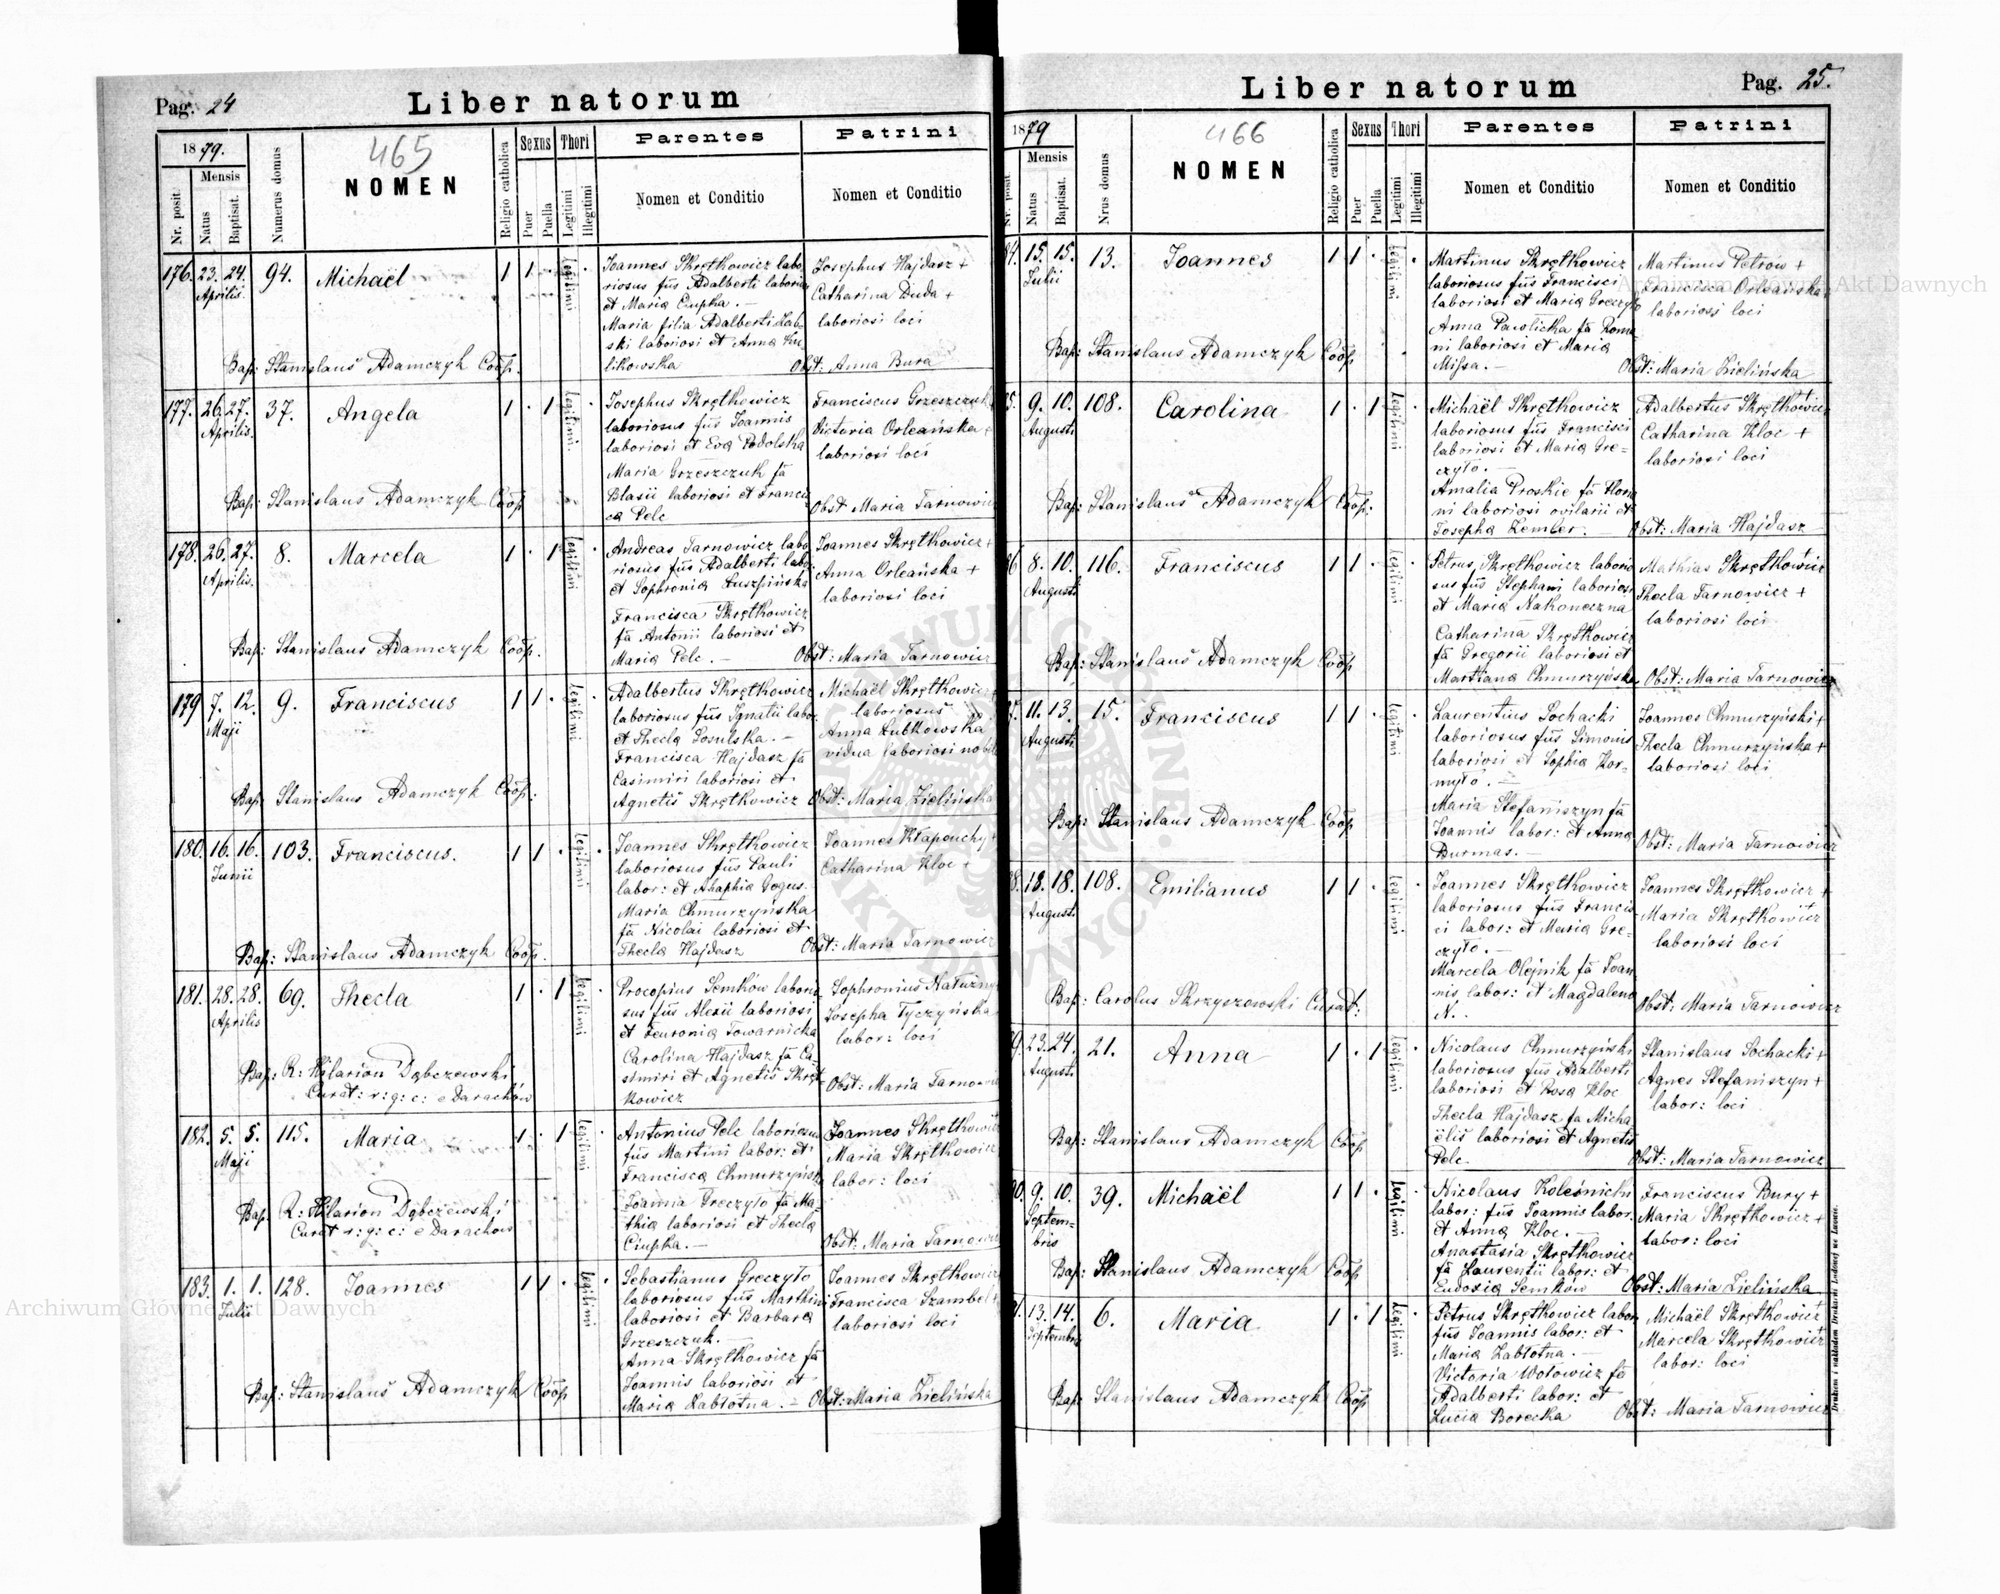 Pag. 24
Liber natorum
465
1879.
Mensis
Nr. posit
Natus
Baptisat.
Numerus domus
NOMEN
Religio catholica
Sexus
Puer
Puella
Thori
Legitimi
Illegitimi
Parentes
Nomen et Conditio
Patrini
Nomen et Conditio
176. 23. 24. 94. Michaël 1 1 .
Aprilis.
Legitimi
Joannes Skrętkowicz labo
riosus fũs Adalberti laborio
et Maria Ciupka. —
Maria filia Adalberti
ski laboriosi et Anna Ku
likowska
Josephus Hajdasz +
Catharina Duda +
laboriosi loci
Bap: Stanislaus Adamczyk Coop.
Obst: Anna Bura
177. 26. 27. 37. Angela 1 . 1
Aprilis.
Legitimi
Josephus Skrętkowicz
laboriosus fũs Joannis
laboriosi et Eva Podolska
Maria Grzeszczuk fã
Blasii laboriosi et Francis
ca Pelc
Franciscus Grzeszczuk
Victoria Orleańska +
laboriosi loci
Bap: Stanislaus Adamczyk Coop
Obst Maria Tarnowicz
178. 26. 27. 8. Marcela 1 . 1
Aprilis.
Legitimi
Andreas Tarnowicz labo
riosus fũs Adalberti labo
et Sophronia Łuszpińska
Francisca Skrętkowicz
fã Antonii laboriosi et
Maria Pelc. —
Joannes Skrętkowicz +
Anna Orleańska +
laboriosi loci
Bap: Stanislaus Adamczyk Coop.
Obst: Maria Tarnowicz
179 7. 12. 9. Franciscus 1 1 .
Maji
Legitimi
Adalbertus Skrętkowicz
laboriosus fũs Ignatii labor
et Thecla Sosulska. —
Francisca Hajdasz fã
Casimiri laboriosi et
Agnetis Skrętkowicz
Michaël Skrętkowicz
laboriosus
Anna Łubkowska
vidua laboriosi
Bap: Stanislaus Adamczyk Coop.
Obst: Maria Zielińska
180. 16. 16. 103. Franciscus. 1 1 .
Junii
Legitimi
Joannes Skrętkowicz
laboriosus fũs Pauli
labor: et Ahaphia Gogus
Maria Chmurzyńska
fã Nicolai laboriosi et
Thecla Hajdasz
Joannes Kłapouchy +
Catharina Kloc +
Bap: Stanislaus Adamczyk Coop.
Obst: Maria Tarnowicz
181. 28. 28. 69. Thecla 1 . 1
Aprilis
Legitimi
Procopius Semków laborio
sus fũs Alexii laboriosi
et Feuronia Towarnicka
Carolina Hajdasz fã Ca
simiri et Agnetis Skręt
kowicz
Sophronius Natużny
Josepha Tyczyńska
labor: loci
Bap: R: Hilarion Dąbczewski
Curat: r: g: c: e Darachów
Obst: Maria Tarnowicz
182. 5. 5. 115. Maria 1 . 1
Maji
Legitimi
Antonius Pelc laboriosus
fũs Martini labor: et
Francisca Chmurzyńska
Joanna Greczyło fã Ma-
thia laboriosi et Thecla
Ciupka. —
Joannes Skrętkowicz
Maria Skrętkowicz
labor: loci
Bap. R: Hilarion Dąbczewski
Curat r: g: c: e Darachow
Obst: Maria Tarnowicz
183. 1. 1. 128. Joannes 1 1 .
Julii
Legitimi
Sebastianus Greczyło
laboriosus fũs Marthini
laboriosi et Barbara
Grzeszczuk. —
Anna Skrętkowicz fã
Joannis laboriosi et
Maria Zabłotna. —
Joannes Skrętkowicz
Francisca Szambel
laboriosi loci
Bap: Stanislaus Adamczyk Coop
Obst: Maria Zielińska
Pag. 25.
Liber natorum
466
1879
Mensis
Nr. posit
Natus
Baptisat.
Nrus domus
NOMEN
Religio catholica
Sexus
Puer
Puella
Thori
Legitimi
Illegitimi
Parentes
Nomen et Conditio
Patrini
Nomen et Conditio
84. 15. 15. 13. Joannes 1 1 .
Julii
Legitimi
Martinus Skrętkowicz
laboriosus fũs Francisci
laboriosi et Maria Greczyło
Anna Pawlicka fã Roma
ni laboriosi et Maria
Missa. —
Martinus Petrów +
Francisca Orleańska
laboriosi loci
Bap: Stanislaus Adamczyk Coop
Obst: Maria Zielińska
85. 9. 10. 108. Carolina 1 . 1
Augusti
Legitimi
Michaël Skrętkowicz
laboriosus fũs Francisci
laboriosi et Maria Gre-
czyło. —
Amalia Proskie fã Floria
ni laboriosi ovilarii et
Josepha Kember.
Adalbertus Skrętkowicz
Catharina Kloc +
laboriosi loci
Bap: Stanislaus Adamczyk Coop:
Obst: Maria Hajdasz
86 8. 10. 116. Franciscus 1 1 .
Augusti
Legitimi
Petrus Skrętkowicz laborio
sus fũs Stephani laboriosi
et Maria Nakoneczna
Catharina Skrętkowicz
fã Gregorii laboriosi et
Marthana Chmurzyńska
Mathias Skrętkowicz
Thecla Tarnowicz +
laboriosi loci
Bap: Stanislaus Adamczyk Coop
Obst: Maria Tarnowicz
87. 11. 13. 15. Franciscus 1 1 .
Augusti
Legitimi
Laurentius Sochacki
laboriosus fũs Simonis
laboriosi et Sophia Kor-
myło. —
Maria Stefaniszyn fã
Joannis labor: et Anna
Burmas. —
Joannes Chmurzyński +
Thecla Chmurzyńska +
laboriosi loci
Bap: Stanislaus Adamczyk Coop
Obst: Maria Tarnowicz
88. 18. 18. 108. Emilianus 1 1 .
Augusti
Legitimi
Joannes Skrętkowicz
laboriosus fũs Francis
ci labor: et Maria Gre-
czyło. —
Marcela Olejnik fã Joan
nis labor: et Magdalena
N..
Joannes Skrętkowicz +
Maria Skrętkowicz
laboriosi loci
Bap: Carolus Skrzyszowski Curat:
Obst: Maria Tarnowicz
89. 23. 24. 21. Anna 1 . 1
Augusti
Legitimi
Nicolaus Chmurzyński
laboriosus fũs Adalberti
laboriosi et Rosa Kloc
Thecla Hajdasz fa Micha
ëlis laboriosi et Agnetis
Pelc
Stanislaus Sochacki +
Agnes Stefaniszyn +
labor: loci
Bap: Stanislaus Adamczyk Coop
Obst: Maria Tarnowicz
90. 9. 10. 39. Michaël 1 1 .
Septem-
bris
Legitimi
Nicolaus Koleśnicki
labor: fũs Joannis labor:
et Anna Kloc. —
Anastasia Skrętkowicz
fã Laurentii labor: et
Eudosia Semków
Franciscus Bury +
Maria Skrętkowicz +
labor: loci
Bap: Stanislaus Adamczyk Coop
Obst: Maria Zielińska
91. 13. 14. 6. Maria 1 . 1
Septembris
Legitimi
Petrus Skrętkowicz labor
fũs Joannis labor: et
Maria Zabłotna. —
Victoria Wołowicz fã
Adalberti labor: et
Lucia Borecka
Michaël Skrętkowicz +
Marcela Skrętkowicz
labor: loci
Bap: Stanislaus Adamczyk Coop
Obst: Maria Tarnowicz
Drukiem i nakładem Drukarni Ludowej we Lwowie.
Archiwum Główne Akt Dawnych
Archiwum Główne Akt Dawnych
ARCHIWUM GŁÓWNE AKT DAWNYCH